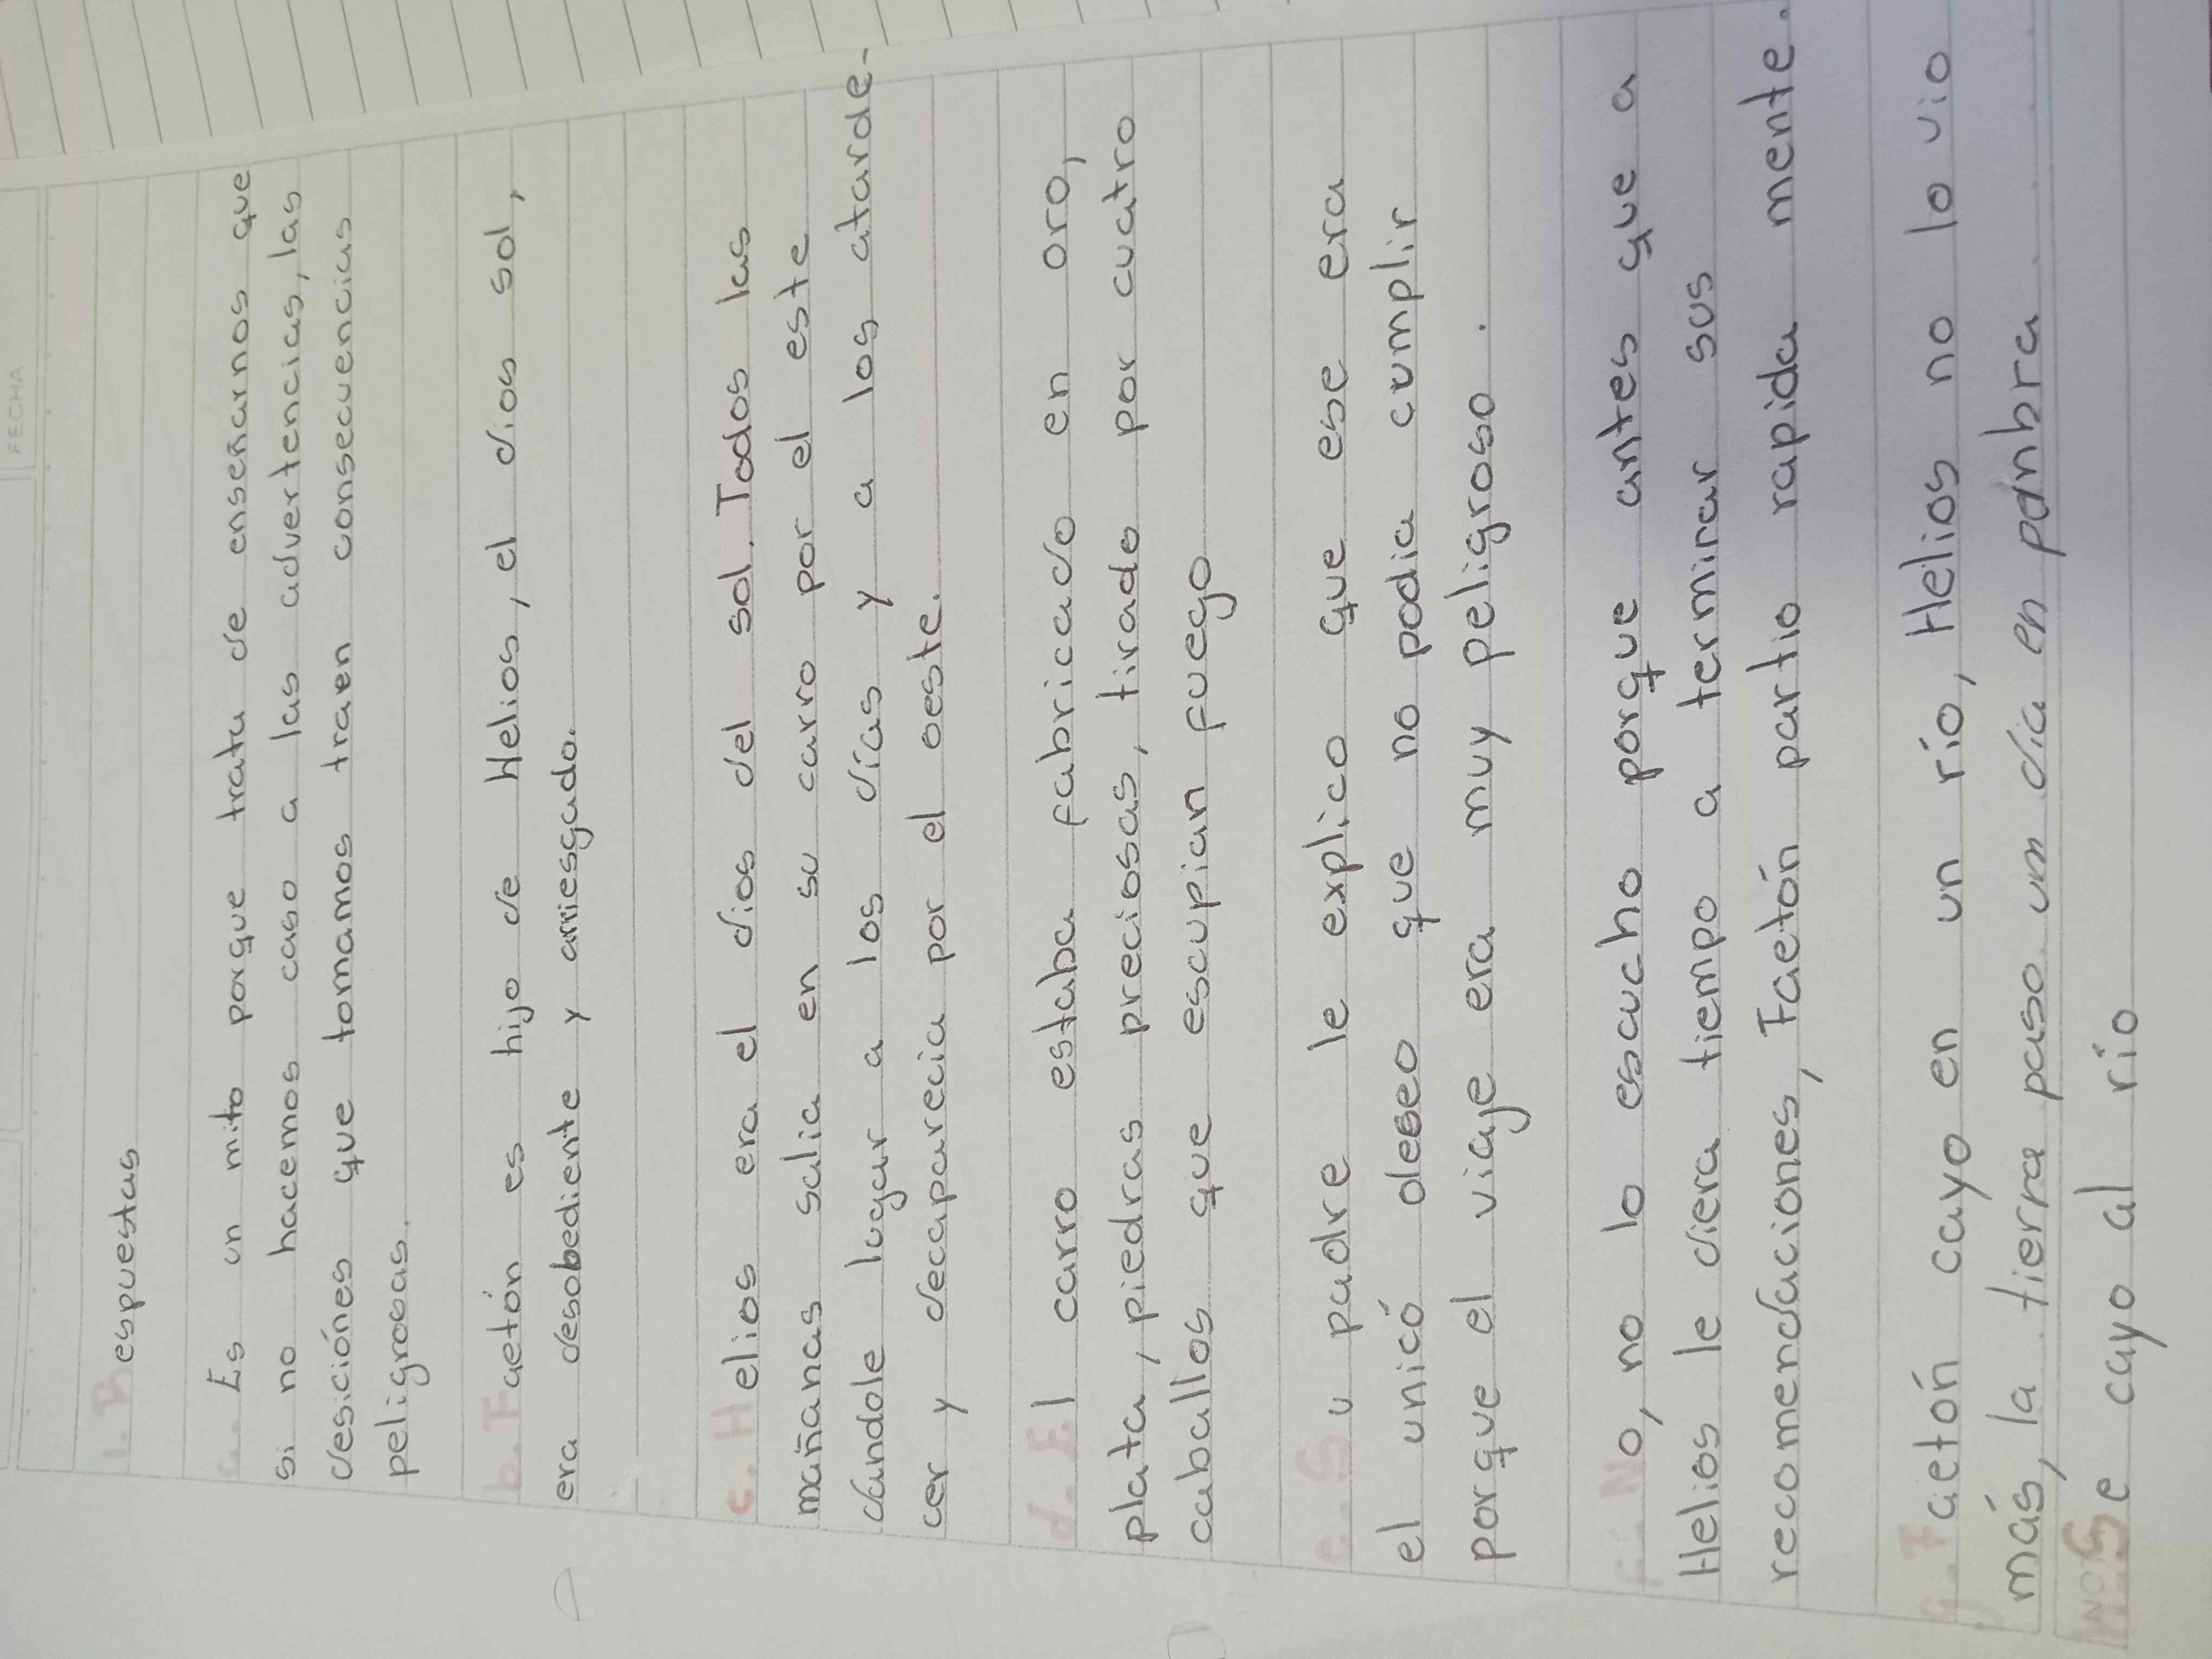 FECHA
1. Respuestas
a. Es un mito porque trata de enseñarnos que
si no hacemos caso a las advertencias, las
desiciónes que tomamos traen consecuencias
peligrosas.
b. Faetón es hijo de Helios, el dios sol,
era desobediente y arriesgado.
c. Helios era el dios del sol. Todos las
mañanas salia en su carro por el este
dandole lugar a los días y a los atarde-
cer y decaparecia por el oeste.
d. El carro estaba fabricado en oro,
plata, piedras preciosas, tirado por cuatro
caballos que escupian fuego
e. Su padre le explico que ese era
el unicó deseo que no podia cumplir
porque el viaje era muy peligroso.
f. No, no lo escucho porque antes que a
Helios le diera tiempo a terminar sus
recomendaciones, Faetón partio rapida mente.
g. Faetón cayo en un río, Helios no lo vio
más, la tierra paso un día en penbra
H. Se cayo al río